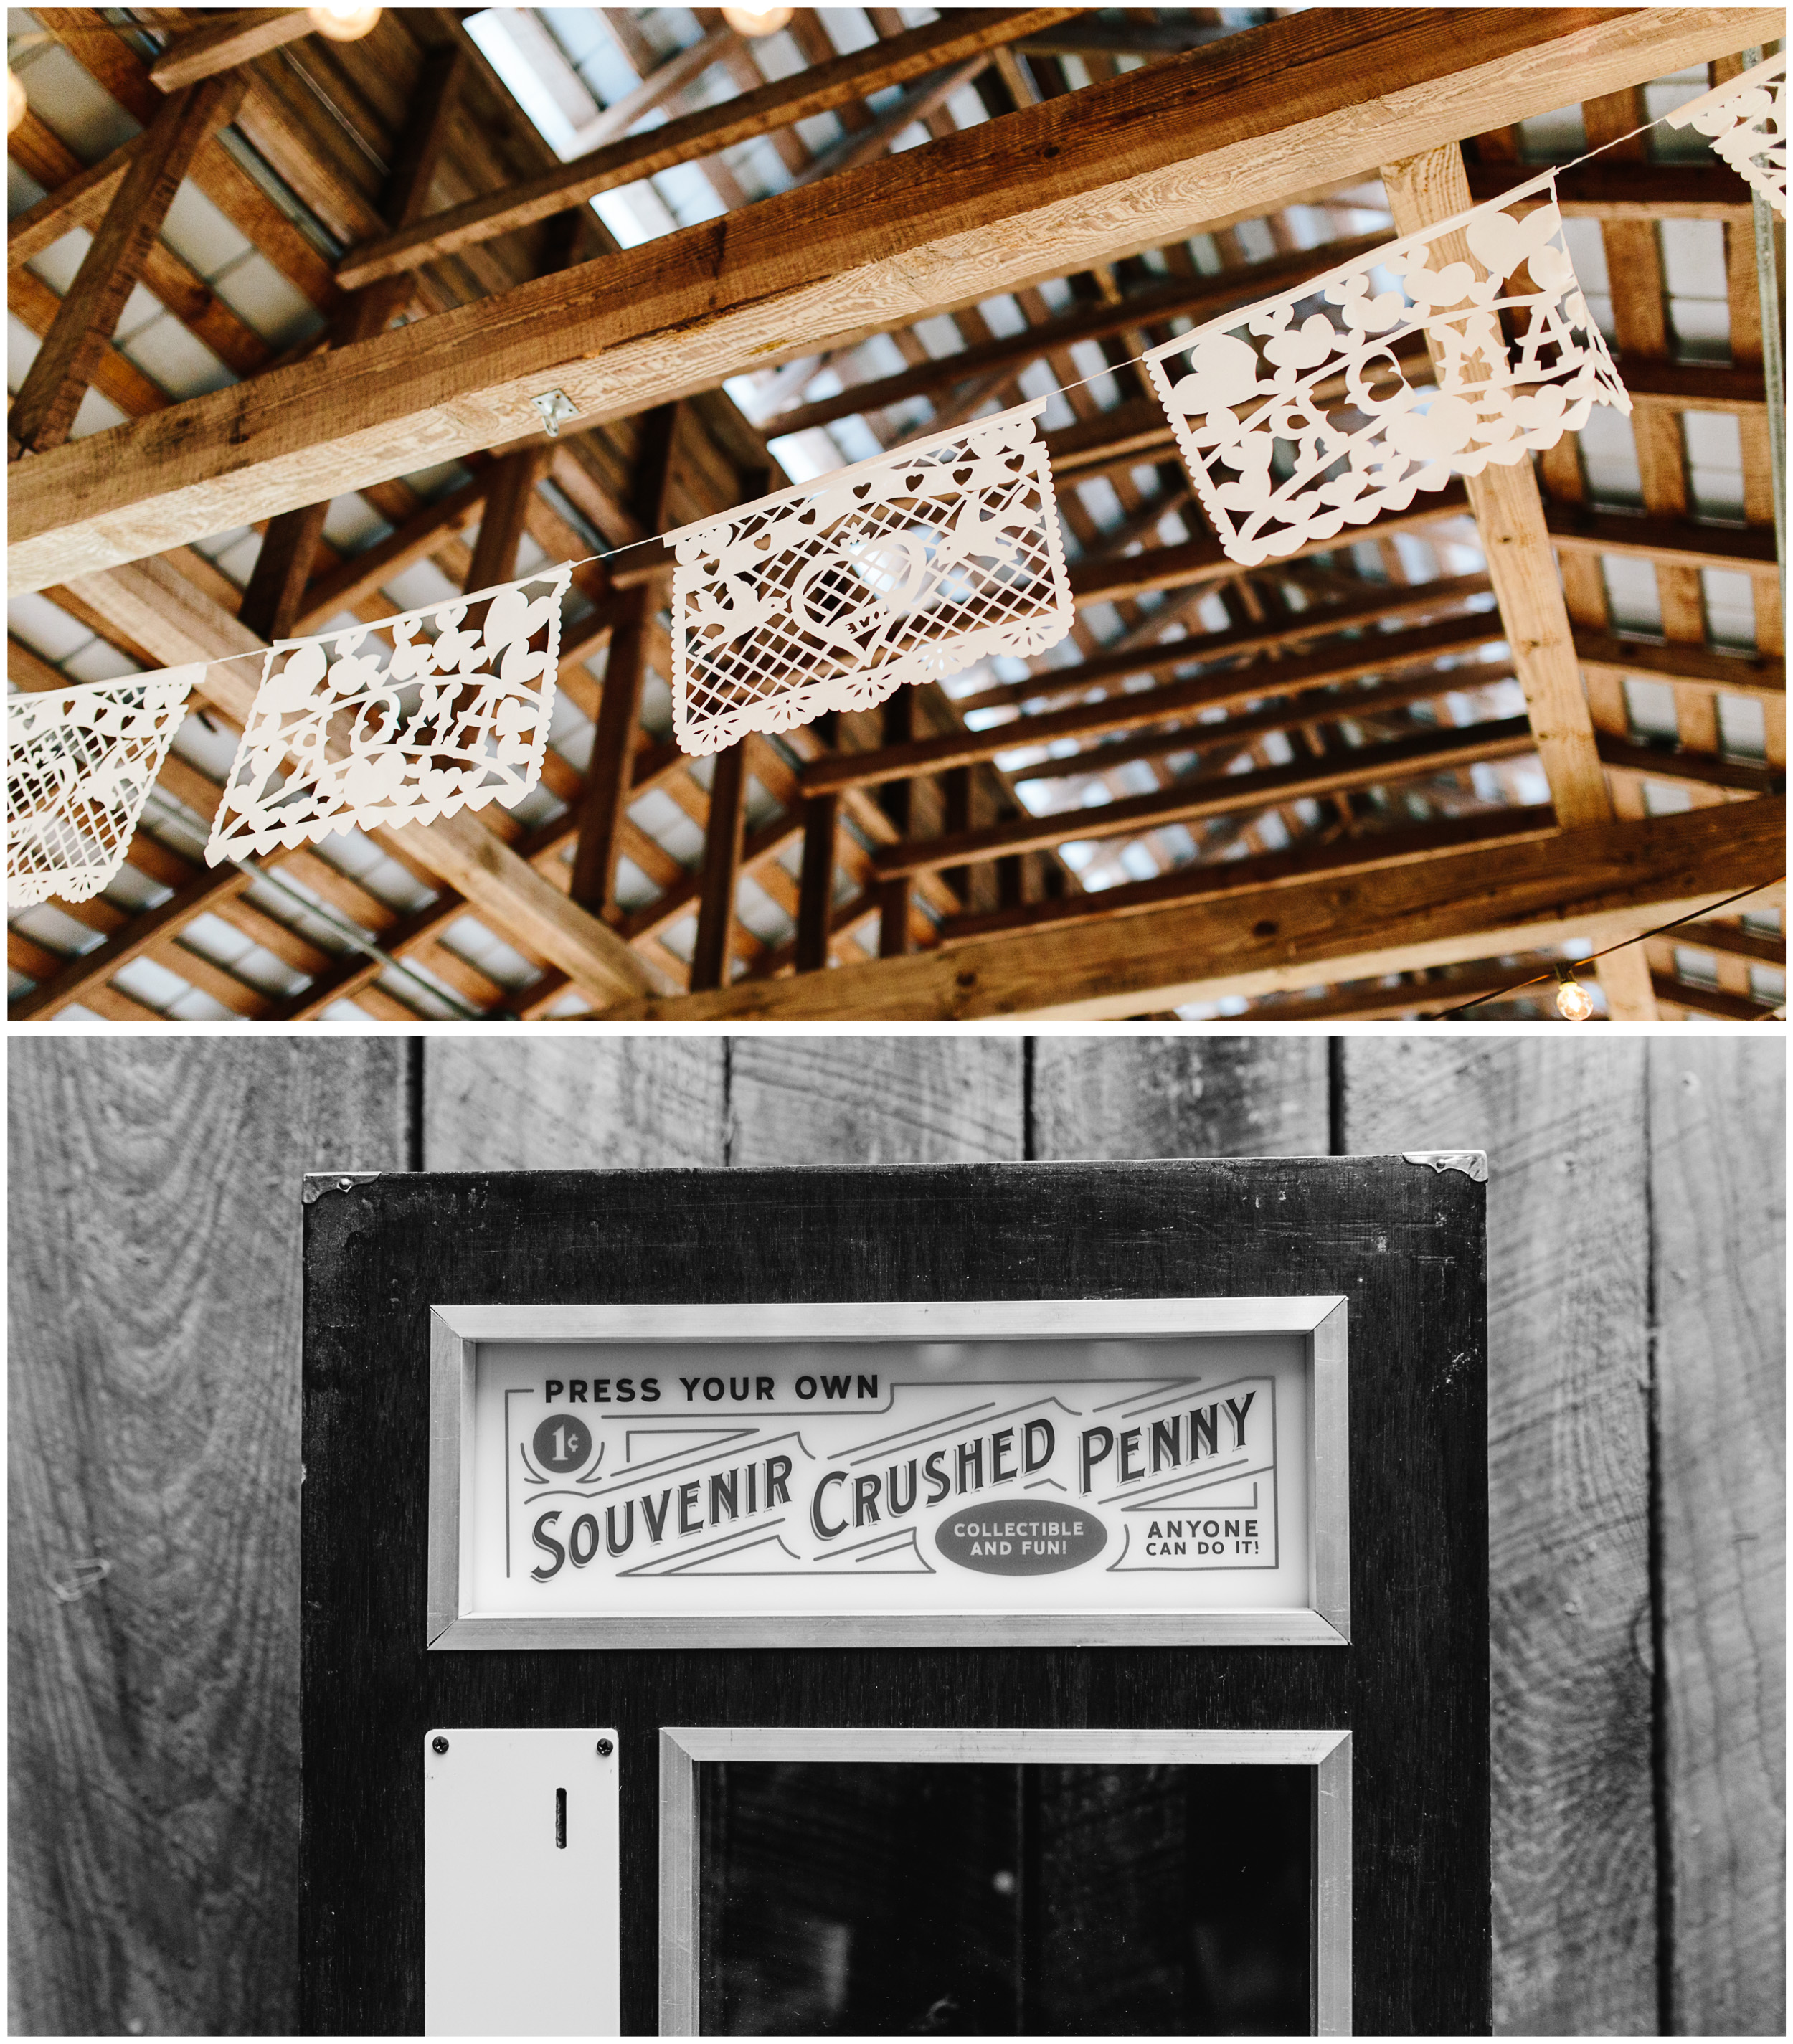 AMOR
AMOR
PRESS YOUR OWN
1¢
SOUVENIR CRUSHED PENNY
COLLECTIBLE
AND FUN!
ANYONE
CAN DO IT!